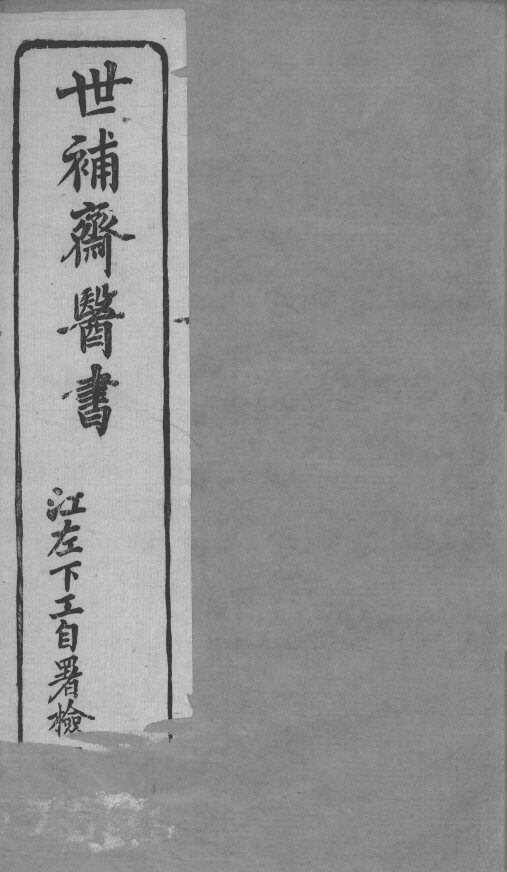 世補齋醫書
江左下工自署檢